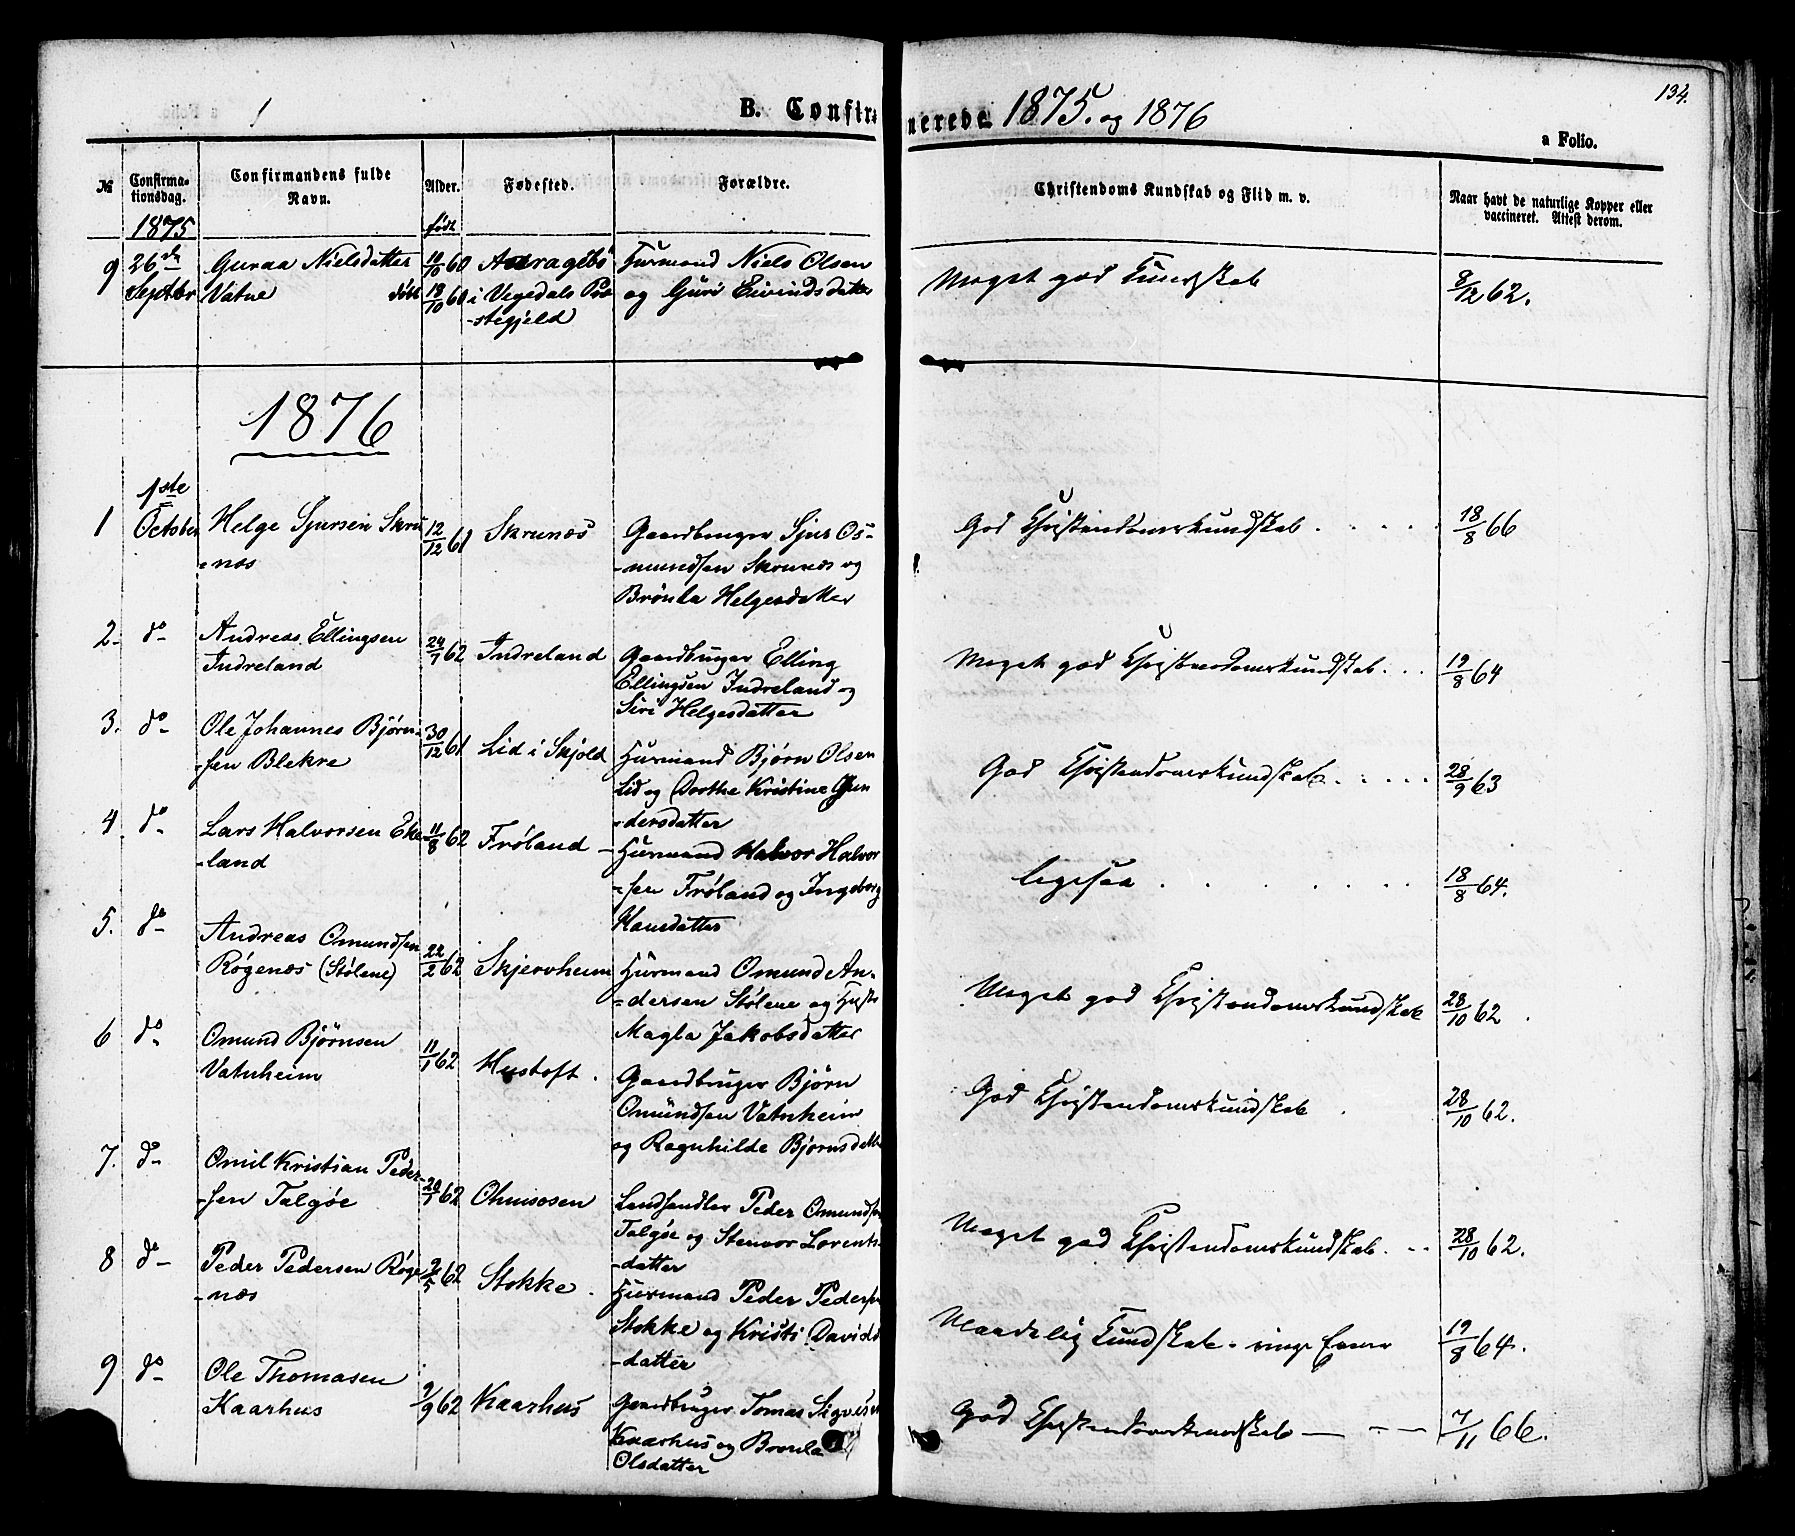 B. Confirmerede 1875. og 1876
134.
a Folio.
№
Confirmationsdag.
Confirmandens fulde Navn.
Alder.
Fødested.
Forældre.
Christendoms Kundskab og Flid m. v.
Naar havt de naturlige Kopper eller vaccineret. Attest derom.
1875
født
9 26de Septbr
Guraa Nielsdatter
Vatne døbt
10/10 60
18/10 60
i Vegedals Præ
-stegjeld
Huusmand Niels Olsen
og Guri Eivindsdatter
Meget god Kundskab
9/12 62.
1876
1 1ste October
Helge Sjursen Skru
-næs
12/12 61
Skrunæs
Gaardbruger Sjur Os-
-mundsen Skrunæs og
Brønla Helgesdatter
God Christendomskundskab
18/8 66
2. do
Andreas Ellingsen
Indreland
24/7 62
Indreland
Gaardbruger Elling
Ellingsen Indreland og
Siri Helgesdatter
Meget god Christendomskundskab
19/8 64
3. do
Ole Johannes Bjørn-
-sen Blekre
30/12 61
Lid i Skjold
Huusmand Bjørn Olsen
Lid og Dorthe Kristine Gun
-dersdatter
God Christendomskundskab
28/9 63
4. do
Lars Halvorsen Eke
-land
11/8 62
Frøland
Huusmand Halvor Halvor
-sen Frøland og Ingeborg
Hansdatter
ligesaa
18/8 64.
5. do
Andreas Omundsen
Røgenæs (Stølene)
22/2 62
Skjervheim
Huusmand Omund An-
-dersen Stølene og Hust
Magla Jakobsdatter
Meget god Christendomskundskab
28/10 62
6 do
Omund Bjørnsen
Vatnheim
11/1 62
Hustoft.
Gaardbruger Bjørn
Omundsen Vatnheim
og Ragnhilde Bjørnsdatter
God Christendomskundskab
28/10 62.
7. do
Omil Kristian Peder-
-sen Talgøe
20/1 62
Landhandler Peder Omundsen
Talgøe og Stenvor Lorents
-datter
Meget god Christendomskundskab
28/10 62.
8 do
Peder Pedersen Røge
-næs
2/5 62
Stokke.
Huusmand Peder Pedersen
Stokke og Kristi Davids
-datter
Maadelig Kundskab. ringe Evner
19/8 64.
9 do
Ole Thomasen
Kaarhus
9/9 62
Kaarhus
Gaardbruger Tomas Sigvisen
Kaarhus og Brønla
Olsdatter
God Christendomskundskab
7/11 66.